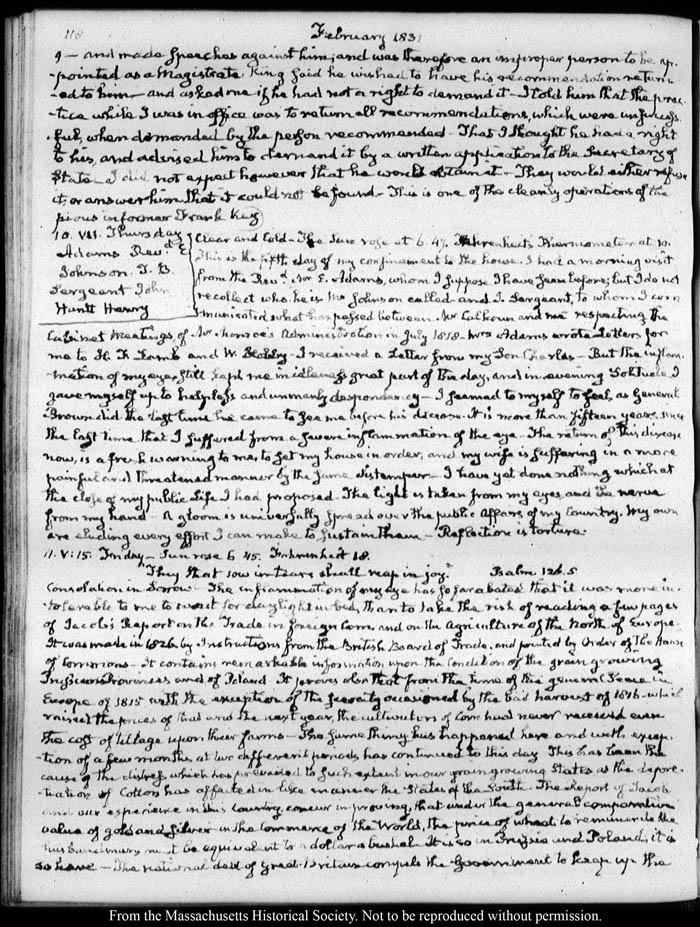 118
February 1831
9 — and made Speeches against him; and was therefore an improper person to be ap-
-pointed as a Magistrate. King said he wished to have his recommendation return-
-ed to him — and asked me if he had not a right to demand it — I told him that the prac-
-tice while I was in office was to return all recommendations, which were unsuccess-
-ful, when demanded by the person recommended — That I thought he had a right
to his, and advised him to demand it by a written application to the Secretary of
State — I did not expect however that he would obtain it — They would either refuse
it, or answer him that it could not be found — This is one of the cleanly operations of the
pious informer Frank Key
10. VII. Thursday
Adams Revd. E
Johnson. T. B
Sergeant John
Huntt Henry
Clear and Cold — The Sun rose at 6. 47. Fahrenheit's thermometer at 10.
This is the fifth day of my confinement to the house. I had a morning visit
from the Revd. Mr E. Adams, whom I suppose I have seen before; but I do not
recollect who he is. Mr Johnson called — and J. Sergeant, to whom I com-
-municated what has passed between Mr Calhoun and me respecting the
Cabinet Meetings of Mr Monroe's Administration in July 1818 — Mrs Adams wrote Letters for
me to and W. — I received a Letter from my Son Charles — But the inflam-
-mation of my eye, still kept me in idleness great part of the day, and in evening Solitude I
gave myself up to helpless and unmanly despondency — I seemed to myself to feel, as General
Brown did the last time he came to see me before his decease. It is more than fifteen years since
the last time that I suffered from a severe inflammation of the eye — The return of this disease
now, is a fresh warning to me, to set my house in order; and my wife is suffering in a more
painful and threatened manner by the same distemper — I have yet done nothing which at
the close of my public Life I had proposed. The light is taken from my eyes, and the nerve
from my hand — A gloom is universally spread over the public Affairs of my Country. My own
are eluding every effort I can make to sustain them — Reflection is torture.
11. V: 15. Friday — Sun rose 6. 45. Fahrenheit 18.
"They that sow in tears shall reap in joy." Psalm. 126. 5
Consolation in Sorrow — The inflammation of my eye has so far abated that it was more in-
-tolerable to me to wait for daylight in bed, than to take the risk of reading a few pages
of Jacob's Report on the Trade in foreign Corn, and on the agriculture of the North of Europe.
It was made in 1826. by Instructions from the British Board of Trade, and printed by Order of the House
of Commons — It contains remarkable information upon the Condition of the grain growing
Prussian Provinces and of Poland. It proves also that from the time of the general Peace in
Europe of 1815 with the exception of the scarcity occasioned by the bad harvest of 1816 — which
raised the prices of that and the next year, the cultivators of Corn had never received even
the cost of tillage upon their farms — The same thing has happened here and with excep-
-tion of a few months at two different periods has continued to this day. This has been the
cause of the distress which has prevailed to such extent in our grain growing States as the depre-
-ciation of Cotton has affected in like manner the States of the South. The Report of Jacob
and our experience in this Country concur in proving, that under the general comparative
value of gold and Silver in the Commerce of the World, the price of wheat to remunerate the
husbandman must be equivalent to a dollar a bushel. It is so in Prussia and Poland; it is
so here — The national debt of Great-Britain compels the Government to keep up the
From the Massachusetts Historical Society. Not to be reproduced without permission.